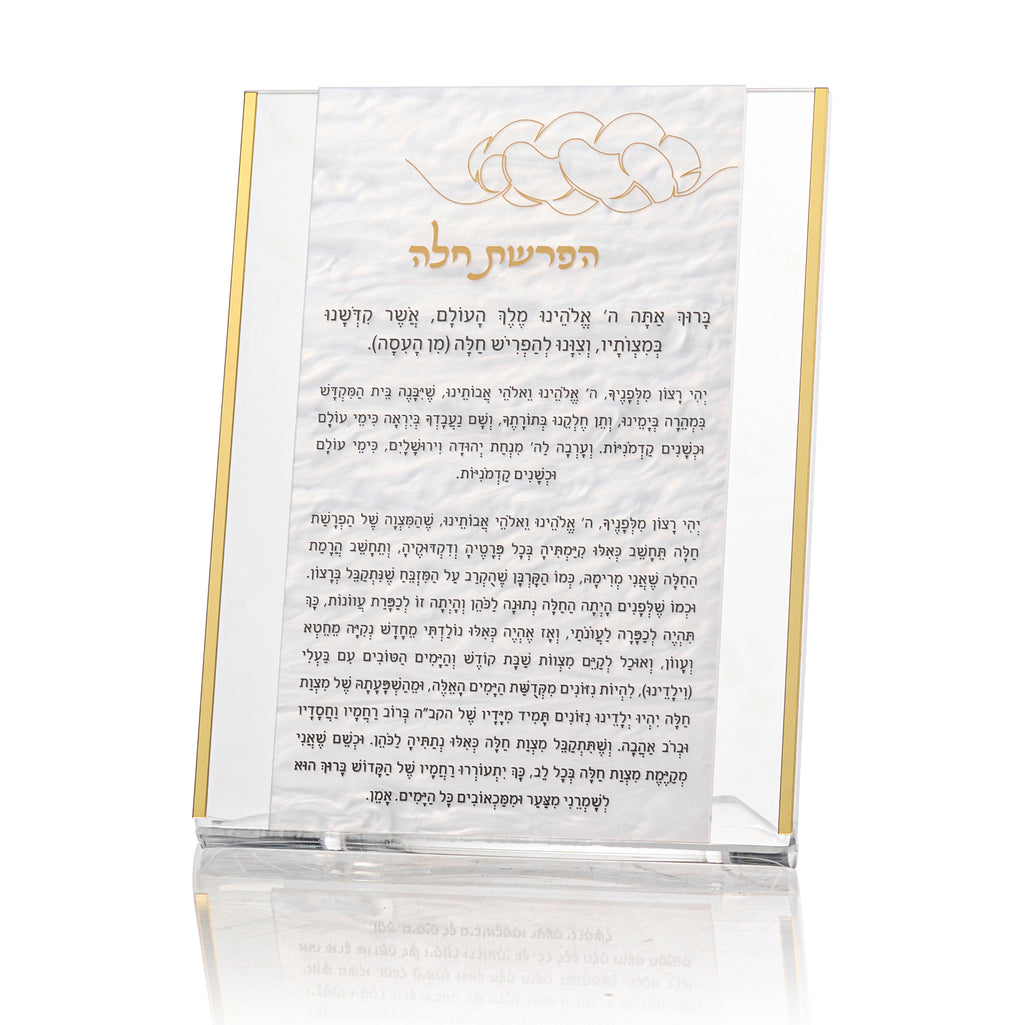 הפרשת חלה
בָּרוּךְ אַתָּה ה' אֱלֹהֵינוּ מֶלֶךְ הָעוֹלָם, אֲשֶׁר קִדְּשָׁנוּ
בְּמִצְוֹתָיו, וְצִוָּנוּ לְהַפְרִישׁ חַלָּה (מִן הָעִסָה).
יְהִי רָצוֹן מִלְּפָנֶיךָ, ה' אֱלֹהֵינוּ וֵאלֹהֵי אֲבוֹתֵינוּ, שֶׁיִּבָּנֶה בֵּית הַמִּקְדָּשׁ
בִּמְהֵרָה בְּיָמֵינוּ, וְתֵן חֶלְקֵנוּ בְּתוֹרָתֶךָ, וְשָׁם נַעֲבָדְךָ בְּיִרְאָה כִּימֵי עוֹלָם
וּכְשָׁנִים קַדְמֹנִיּוֹת. וְעָרְבָה לַה' מִנְחַת יְהוּדָה וִירוּשָׁלָיִם, כִּימֵי עוֹלָם
וּכְשָׁנִים קַדְמֹנִיּוֹת.
יְהִי רָצוֹן מִלְּפָנֶיךָ, ה' אֱלֹהֵינוּ וֵאלֹהֵי אֲבוֹתֵינוּ, שֶׁהַמִּצְוָה שֶׁל הַפְרָשַׁת
חַלָּה תֵּחָשֵׁב כְּאִלּוּ קִיַּמְתִּיהָ בְּכָל פְּרָטֶיהָ וְדִקְדּוּקֶיהָ, וְתֵחָשֵׁב הֲרָמַת
הַחַלָּה שֶׁאֲנִי מְרִימָה, כְּמוֹ הַקָּרְבָּן שֶׁהֻקְרַב עַל הַמִּזְבֵּחַ שֶׁנִּתְקַבֵּל בְּרָצוֹן.
וּכְמוֹ שֶׁלְּפָנִים הָיְתָה הַחַלָּה נְתוּנָה לַכֹּהֵן וְהָיְתָה זוֹ לְכַפָּרַת עֲווֹנוֹת, כָּךְ
תִּהְיֶה לְכַפָּרָה לַעֲוֹנֹתַי, וְאָז אֶהְיֶה כְּאִלּוּ נוֹלַדְתִּי מֵחָדָשׁ נְקִיָּה מֵחֵטְא
וְעָווֹן, וְאוּכַל לְקַיֵּם מִצְווֹת שַׁבַּת קוֹדֶשׁ וְהַיָּמִים הַטּוֹבִים עִם בַּעְלִי
(וִילָדֵינוּ), לִהְיוֹת נִזּוֹנִים מִקְּדֻשַּׁת הַיָּמִים הָאֵלֶּה, וּמֵהַשְׁפָּעָתָהּ שֶׁל מִצְוַת
חַלָּה יִהְיוּ יְלָדֵינוּ נִזּוֹנִים תָּמִיד מִיָּדָיו שֶׁל הקב"ה בְּרוֹב רַחֲמָיו וַחֲסָדָיו
וּבְרֹב אַהֲבָה. וְשֶׁתִּתְקַבֵּל מִצְוַת חַלָּה כְּאִלּוּ נְתַתִּיהָ לַכֹּהֵן. וּכְשֵׁם שֶׁאֲנִי
מְקַיֶּמֶת מִצְוַת חַלָּה בְּכָל לֵב, כָּךְ יִתְעוֹרְרוּ רַחֲמָיו שֶׁל הַקָּדוֹשׁ בָּרוּךְ הוּא
לְשָׁמְרֵנִי מִצַּעַר וּמִמַּכְאוֹבִים כָּל הַיָּמִים. אָמֵן.